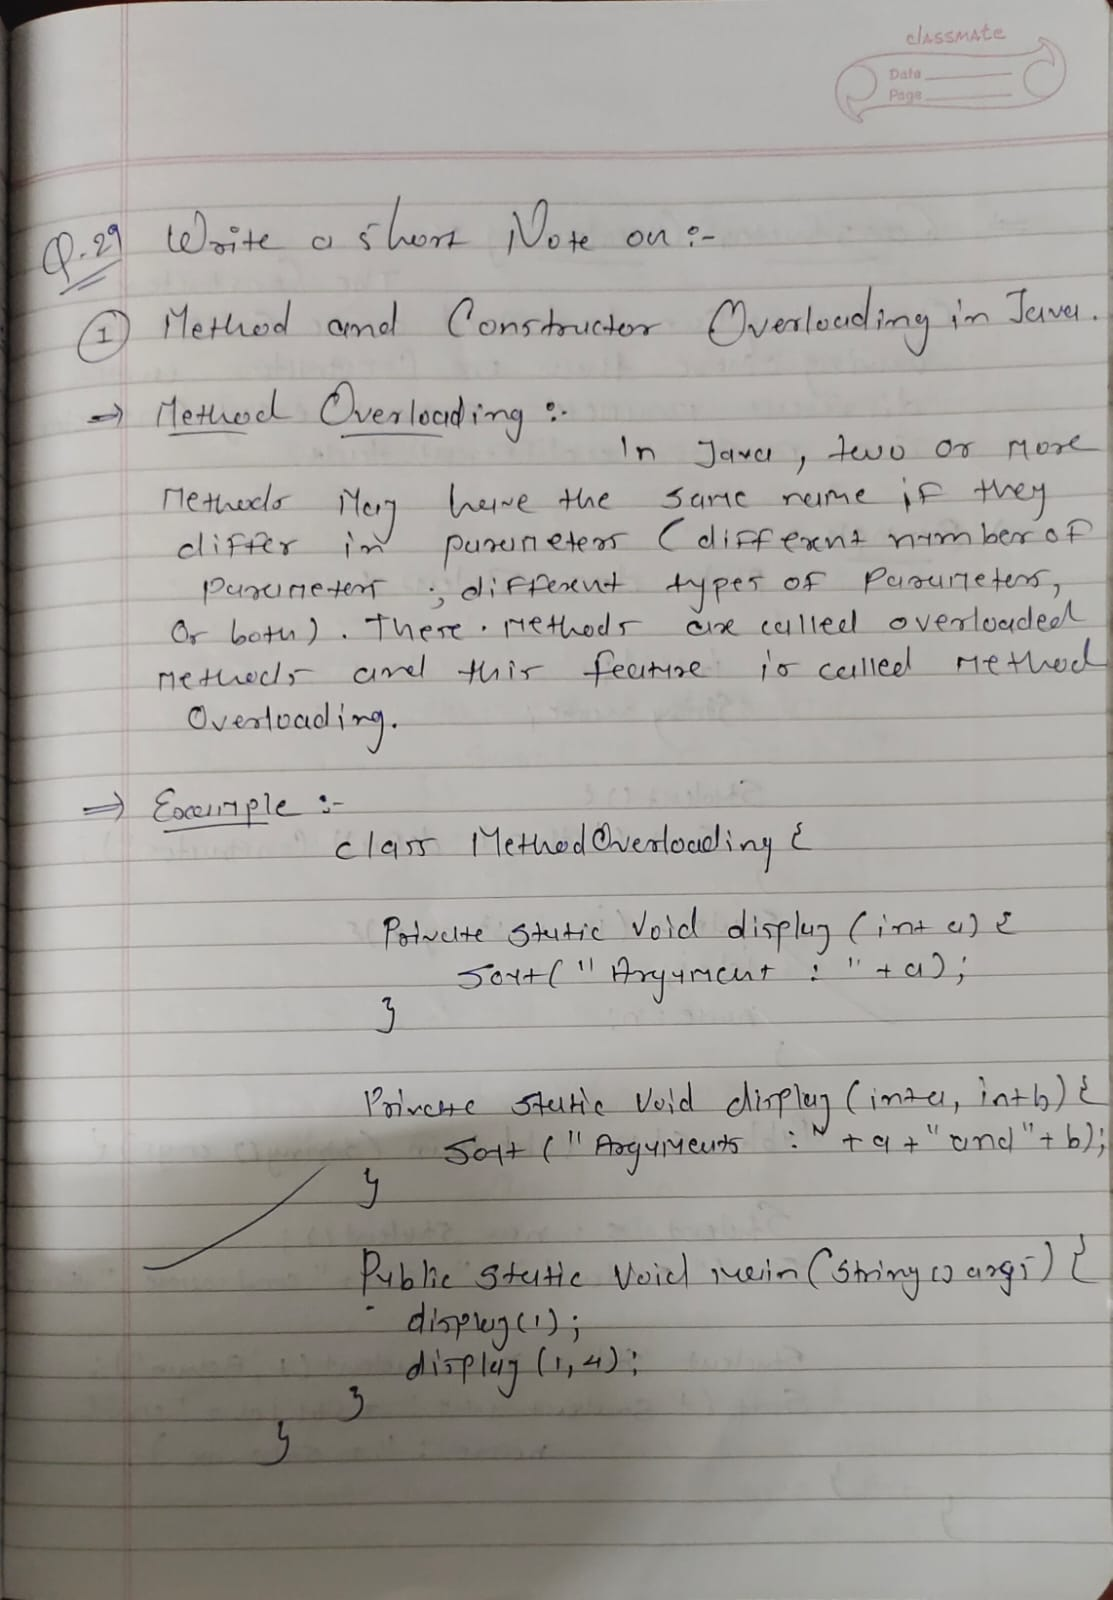 classmate
Date
Page
Q.29 Write a short Note on :-
① Method and Constructor Overloading in Java.
⇒ Method Overloading :-
In Java, two or more
Methods May have the same name if they
differ in parameters (different number of
parameters, different types of Parameters,
Or both). These methods are called overloaded
methods and this feature is called method
Overloading.
⇒ Example :-
class MethodOverloading {
Private static Void display (int a) {
Sout(" Argument : " + a);
}
Private static Void display (int a, int b) {
Sout (" Arguments : " + a + "and" + b);
}
Public static Void main (String[] args) {
display(1);
display (1,4);
}
}